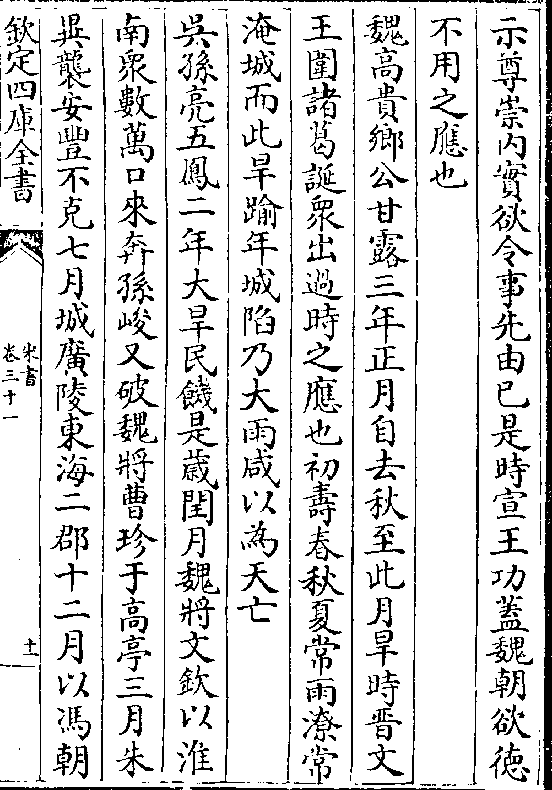 示尊崇内實欲令事先由已是時宣王功蓋魏朝欲徳
不用之應也
魏高貴鄉公甘露三年正月自去秋至此月旱時晉文
王圍諸葛誕衆出過時之應也初壽春秋夏常雨潦常
淹城而此旱踰年城陷乃大雨咸以為天亡
吳孫亮五鳳二年大旱民饑是歲閏月魏將文欽以淮
南衆數萬口來奔孫峻又破魏將曹珍于高亭三月朱
異襲安豐不克七月城廣陵東海二郡十二月以馮朝
欽定四庫全書
宋書
卷三十一
十一